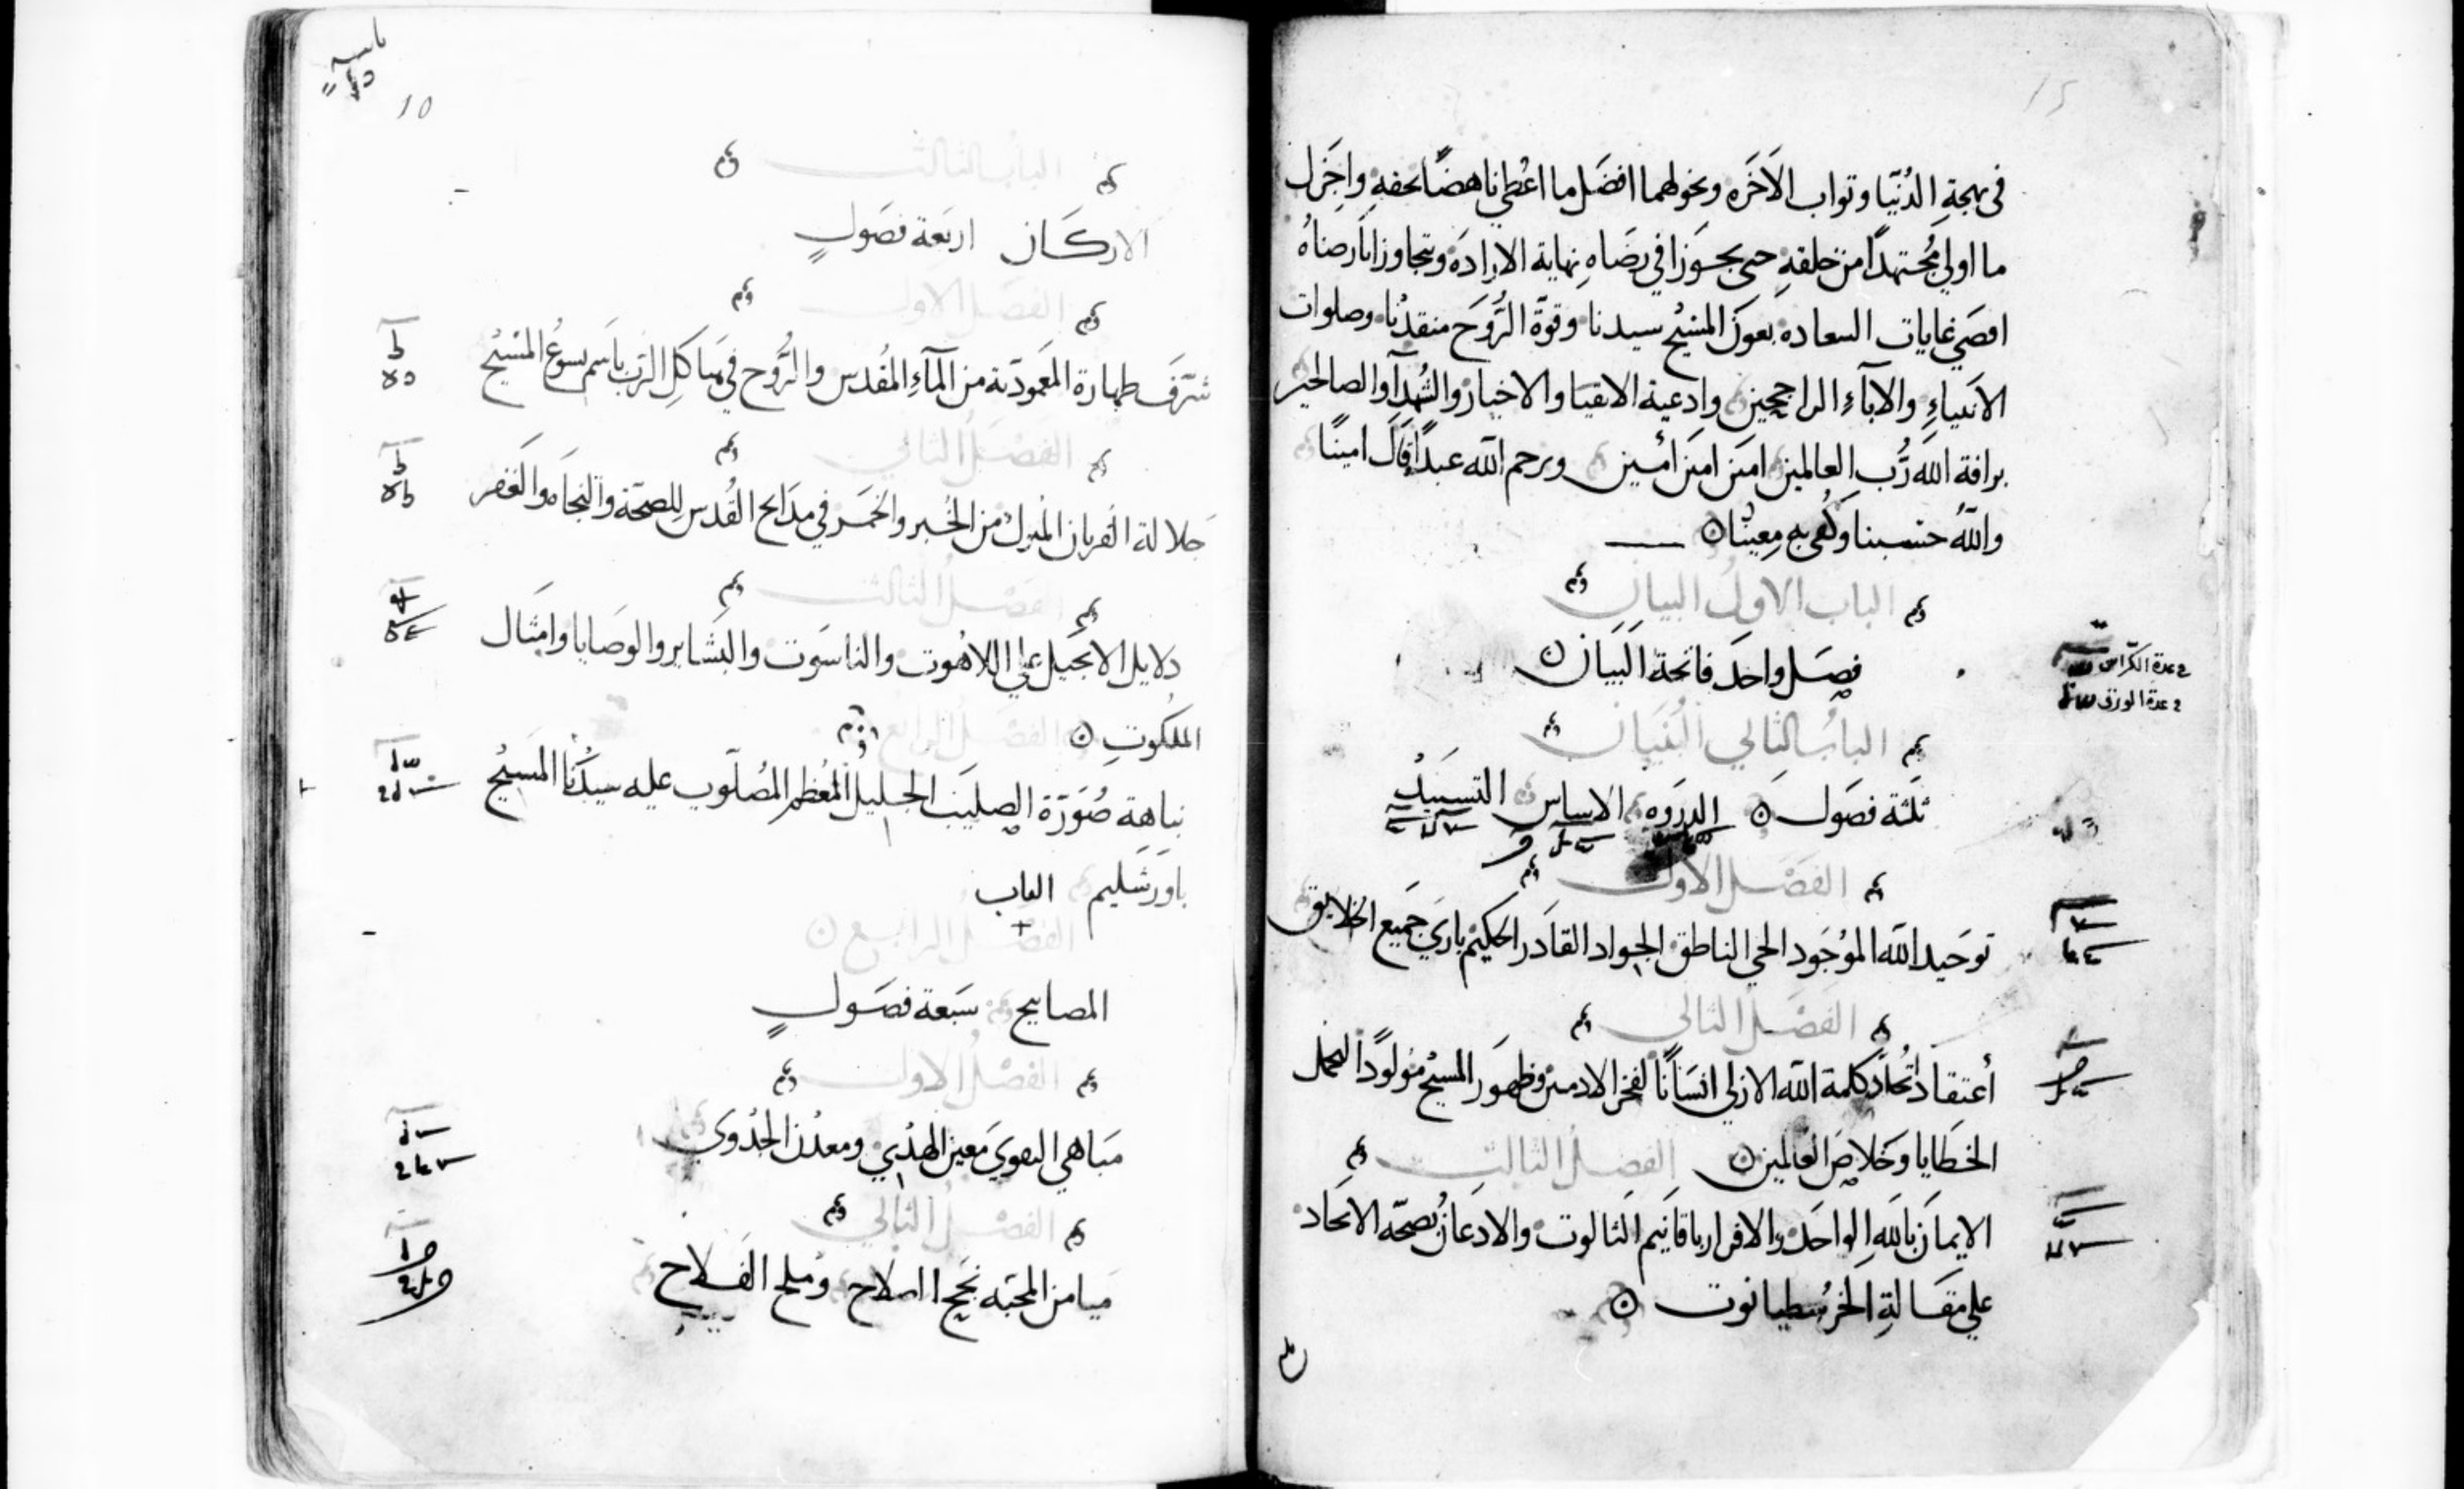 في بهجة الدُنيا وتواب الاَخَره ونخولهما افضَل ما اعُطي ناهضًا بحقهِ واجَزل
ما اولي مُجتهدًا من خلقهِ حتي يجَوزا في رضَاهِ نهاية الارادَه ويتجاوزا بارضاهُ
اقصَي غايات السعاده بعوَن المسَيْح سيدنا وقوّة الرُوَح منقدْنا وصلوات
الاَنبياءِ والاباَءِ الراجحِين وادعية الاتقيَا والاخيار والشُهدآ والصالحين
برافة الله رُب العالمين امَين امَين اُمَين ويرحم الله عبدًا قَال امينًا
والله حسَبنا وكُفي به مِعينُا ن
الباب الاولُ البيان
فصَل واحَد فاتحة البَيان ن
في عدة الكرّاس
في عدة الورق
البابُ الثاني البُنيَان
ثَلثة فصَول ن الدروَه الاساس التسبيكُ
الفصَل الاول
توحَيد الله الموُجَود الحي الناطق الجواد القاَدر الحكيْم باريَ جَميع الخلايق
الفصَل الثاني
أعتقاد اُتحاَد كلمة الله الازلي انسَانًا لفخر الادمين وظهَور المسيْح مَولودًا لتحمل
الخطَايا وخَلاصِ العَالمين ن الفصَل الثالث
الايماَن بالَله الواحَد والاقرار باقانَيم الثالوت والادعَان بصحّه الاتحاَد
علي مقَالةِ الخرُسطيانوت ن
10
الباب الثالث
الاركَان اربَعَة فصَولٍ
الفصَل الاول
شرَف طهارة المَعموديَة من المآءِ المُقدس والرُوح في هَياكلِ الرَب باسَم يسوُع المسَيْح
الفصَل الثاني
جَلالة القربان المُبرك من الخُبر والخمَر في مدَابح القُدس للصحّة والنجاَه والغَفر
الفصَل الثالث
دلايل الانجَيل علي اللاهُوت والناسَوت والبشَاير والوصَايا وامثَال
الملكُوتِ ن الفصَل الرابع
نباهَة صُوَرّة الصليَب الجليل المُعظم المُصلَوب عليه سيدُنا المسَيْح
باورَشَليم الباب
الفصَل الرابع ن
المصابيح سَبعة فصَولٍ
الفصْل الاول
مَباهي التقويَ مَعين الهدُي ومعدْن الجدْوَي
الفصْل الثاني
مَيامن المحَبّه نجَح الصلاح وُملح الفَلاح